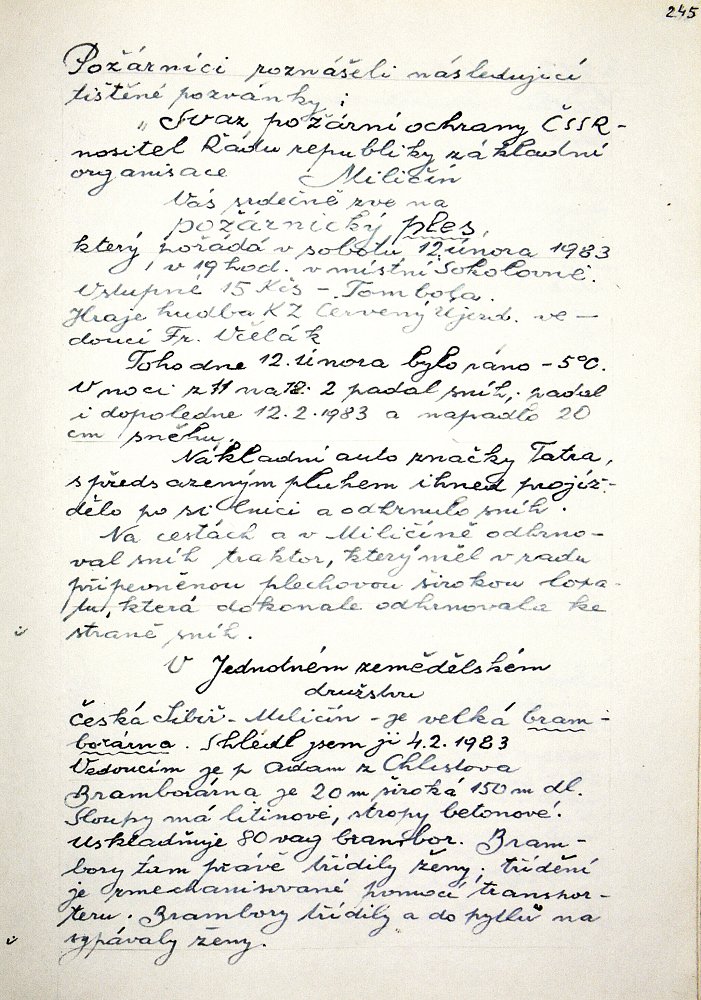 245
Požárníci roznášeli následující
tištěné pozvánky:
„Svaz požární ochrany ČSSR -
nositel Řádu republiky základní
organisace Miličín
Vás srdečně zve na
požárnický ples,
který pořádá v sobotu 12. února 1983
v 19 hod. v místní Sokolovně.
Vstupné 15 Kčs - Tombola.
Hraje hudba KZ Červený Újezd. ve-
doucí Fr. Včelák
Toho dne 12. února bylo ráno - 5°C.
V noci z 11 na 12. 2 padal sníh, padal
i dopoledne 12.2.1983 a napadlo 20
cm sněhu.
Nákladní auto značky Tatra,
s předsazeným pluhem ihned projíž-
dělo po silnici a odhrnulo sníh.
Na cestách a v Miličíně odhrno-
val sníh traktor, který měl v zadu
připevněnou plechovou širokou lopa-
tu, která dokonale odhrnovala ke
straně sníh.
V Jednotném zemědělském
družstvu
Česká Sibiř - Miličín - je velká bram-
borárna. Shlédl jsem ji 4.2.1983
Vedoucím je p Adam z Chlistova
Bramborárna je 20 m široká 150 m dl.
Sloupy má litinové, stropy betonové.
Uskladňuje 80 vag brambor. Bram-
bory tam právě třídily ženy; třídění
je zmechanisované pomocí transpor-
teru. Brambory třídily a do pytlů na
sypávaly ženy.